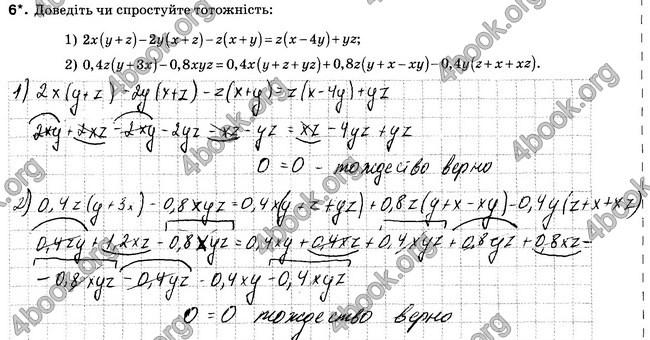 6*. Доведіть чи спростуйте тотожність:
1) 2x(y+z)−2y(x+z)−z(x+y)=z(x−4y)+yz;
2) 0,4z(y+3x)−0,8xyz=0,4x(y+z+yz)+0,8z(y+x−xy)−0,4y(z+x+xz).
1) 2x(y+z)-2y(x+z)-z(x+y)=z(x-4y)+yz
2xy+2xz-2xy-2yz-xz-yz=xz-4yz+yz
0=0 - тождество верно
2) 0,4z(y+3x)-0,8xyz=0,4x(y+z+yz)+0,8z(y+x-xy)-0,4y(z+x+xz)
0,4zy+1,2xz-0,8xyz=0,4xy+0,4xz+0,4xyz+0,8yz+0,8xz-
-0,8xyz-0,4yz-0,4xy-0,4xyz
0=0 тождество верно
4book.org
4book.org
4book.org
4book.org
4book.org
4book.org
4book.org
4book.org